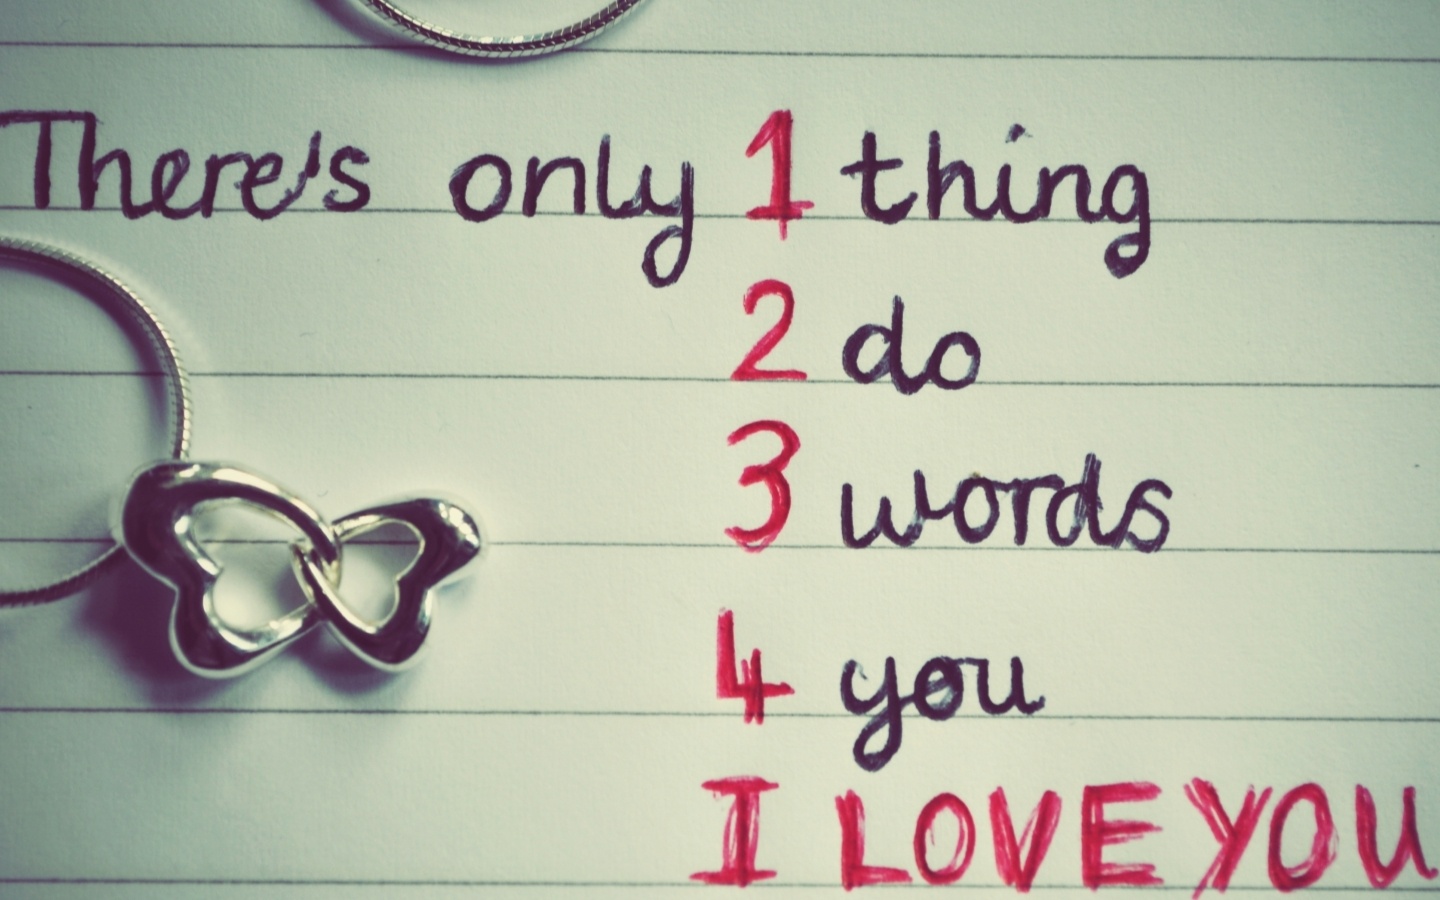 There's only 1 thing
2 do
3 words
4 you
I LOVE YOU